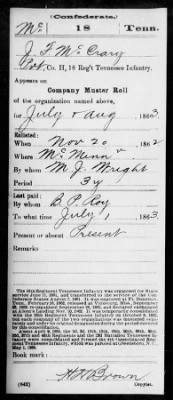 (Confederate.)
Mc 18 Tenn.
J. F. McCrary
Pvt, Co. H, 18 Reg't Tennessee Infantry.
Appears on
Company Muster Roll
of the organization named above,
for July & Aug, 1863.
Enlisted:
When Nov 20, 1862
Where McMinn
By whom M. J. Wright
Period 3 y
Last paid:
By whom B. P. Roy
To what time July 1, 1863.
Present or absent Present
Remarks:
Book mark:
H W Brown
(642) Copyist.